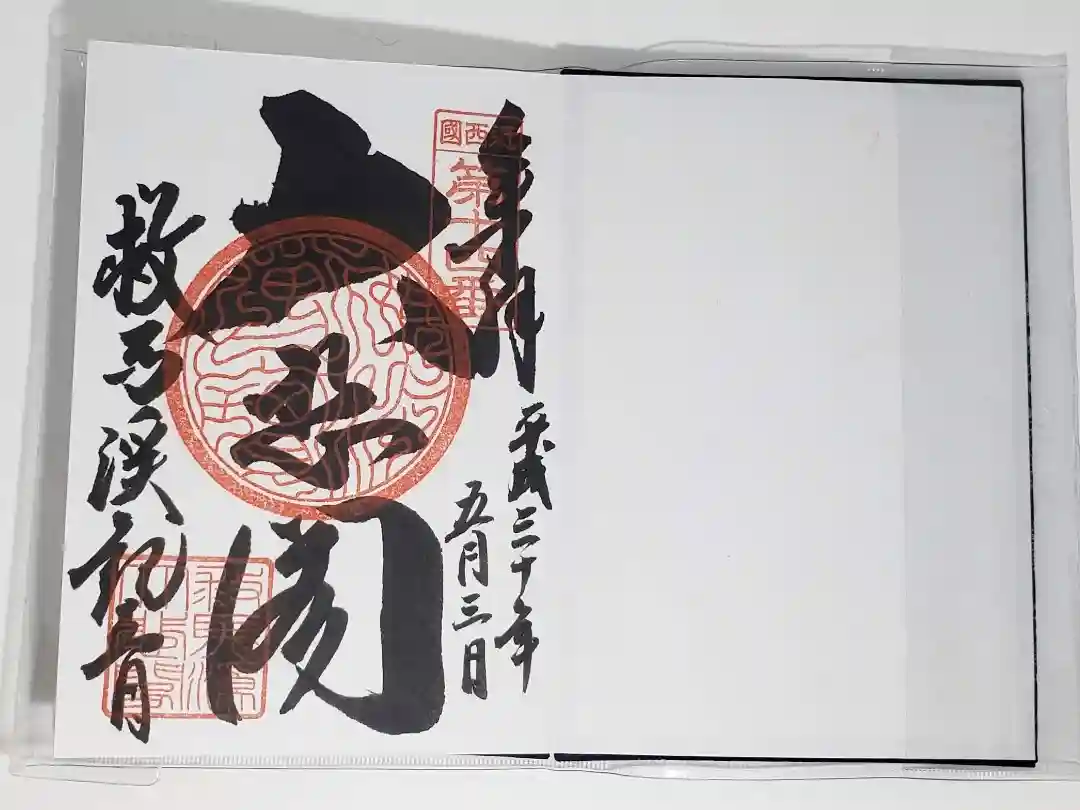 奉拝
平成三十年
五月三日
西國
第十四番
大悲閣
救馬溪観音